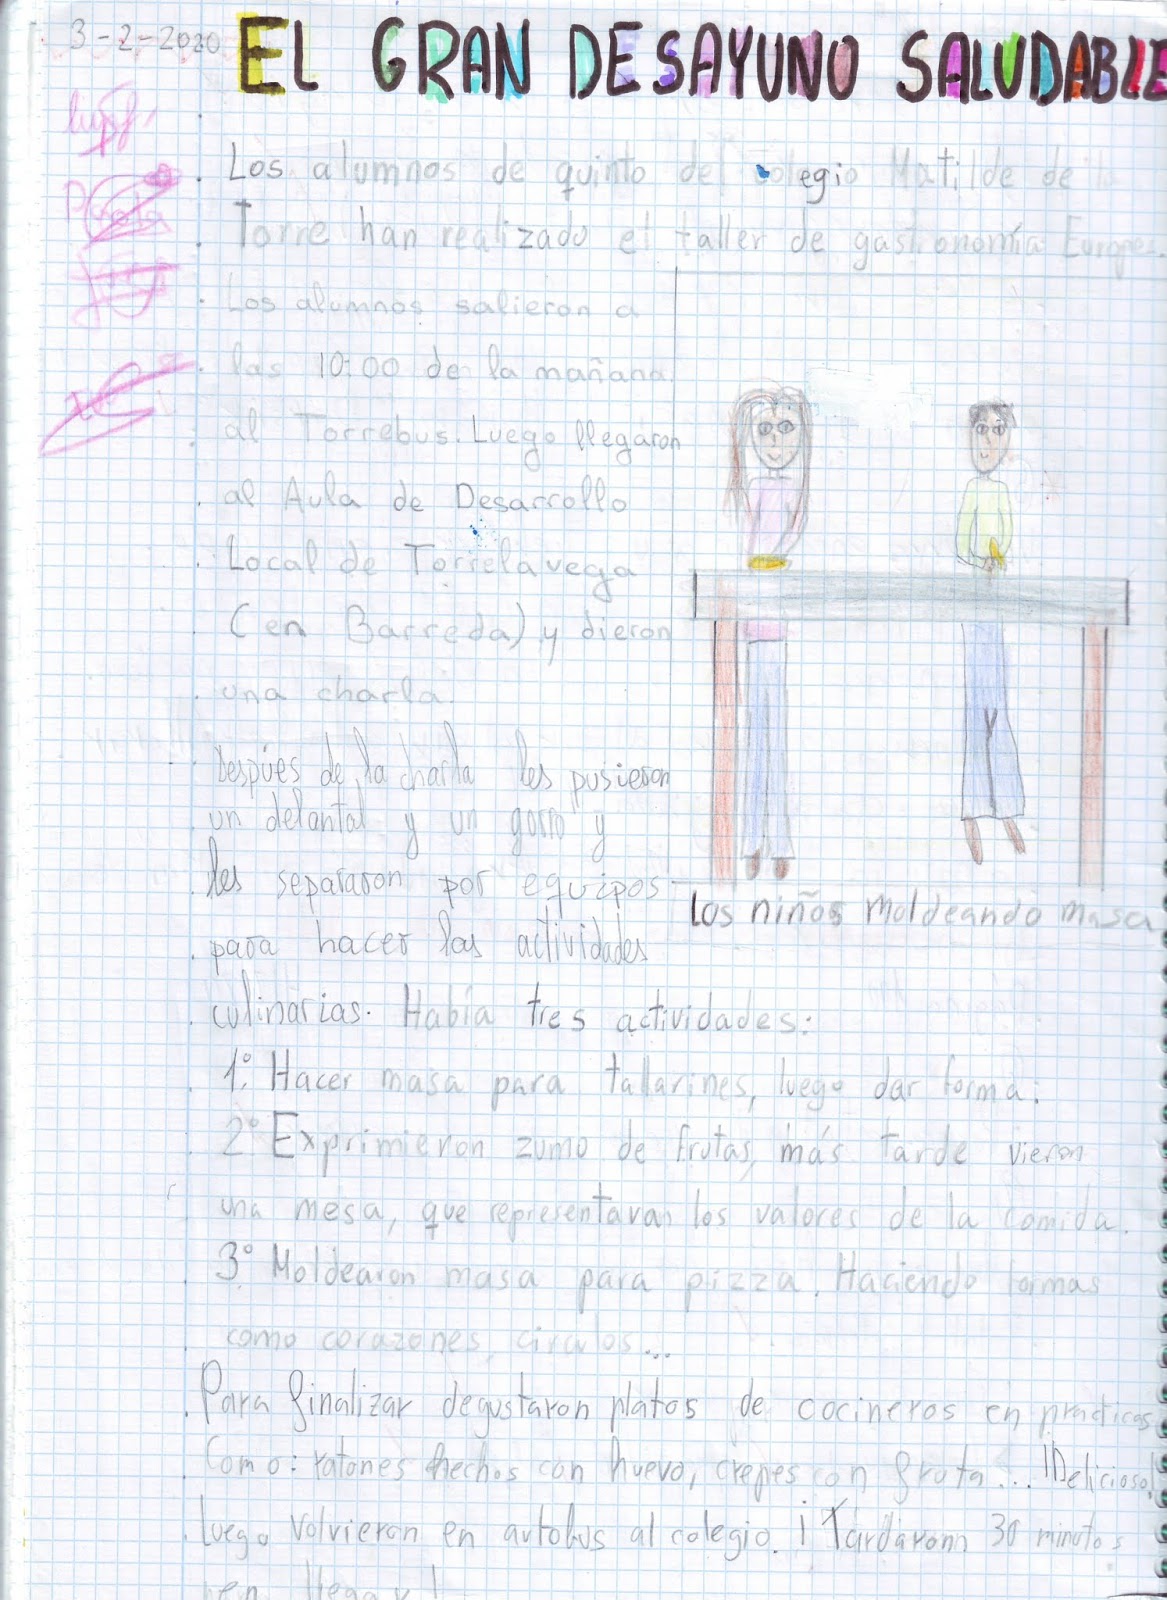 3-2-2020
EL GRAN DESAYUNO SALUDABLE
Los alumnos de quinto del colegio Matilde de la
Torre han realizado el taller de gastronomía Europea.
Los alumnos salieron a
las 10:00 de la mañana
al Torrebus. Luego llegaron
al Aula de Desarrollo
Local de Torrelavega
(en Barreda) y dieron
una charla.
Despúes de la charla les pusieron
un delantal y un gorro y
les separaron por equipos
para hacer las actividades
culinarias. Había tres actividades:
Los niños moldeando masa
1º. Hacer masa para tallarines, luego dar forma.
2º Exprimieron zumo de frutas, más tarde vieron
una mesa, que representavan los valores de la comida.
3º Moldearon masa para pizza. Haciendo formas
como corazones, circulos...
Para finalizar degustaron platos de cocineros en practicas
Como: ratones hechos con huevo, crepes con fruta... ¡Delicioso!
luego volvieron en autobus al colegio. ¡Tardaronn 30 minutos
en llegar!